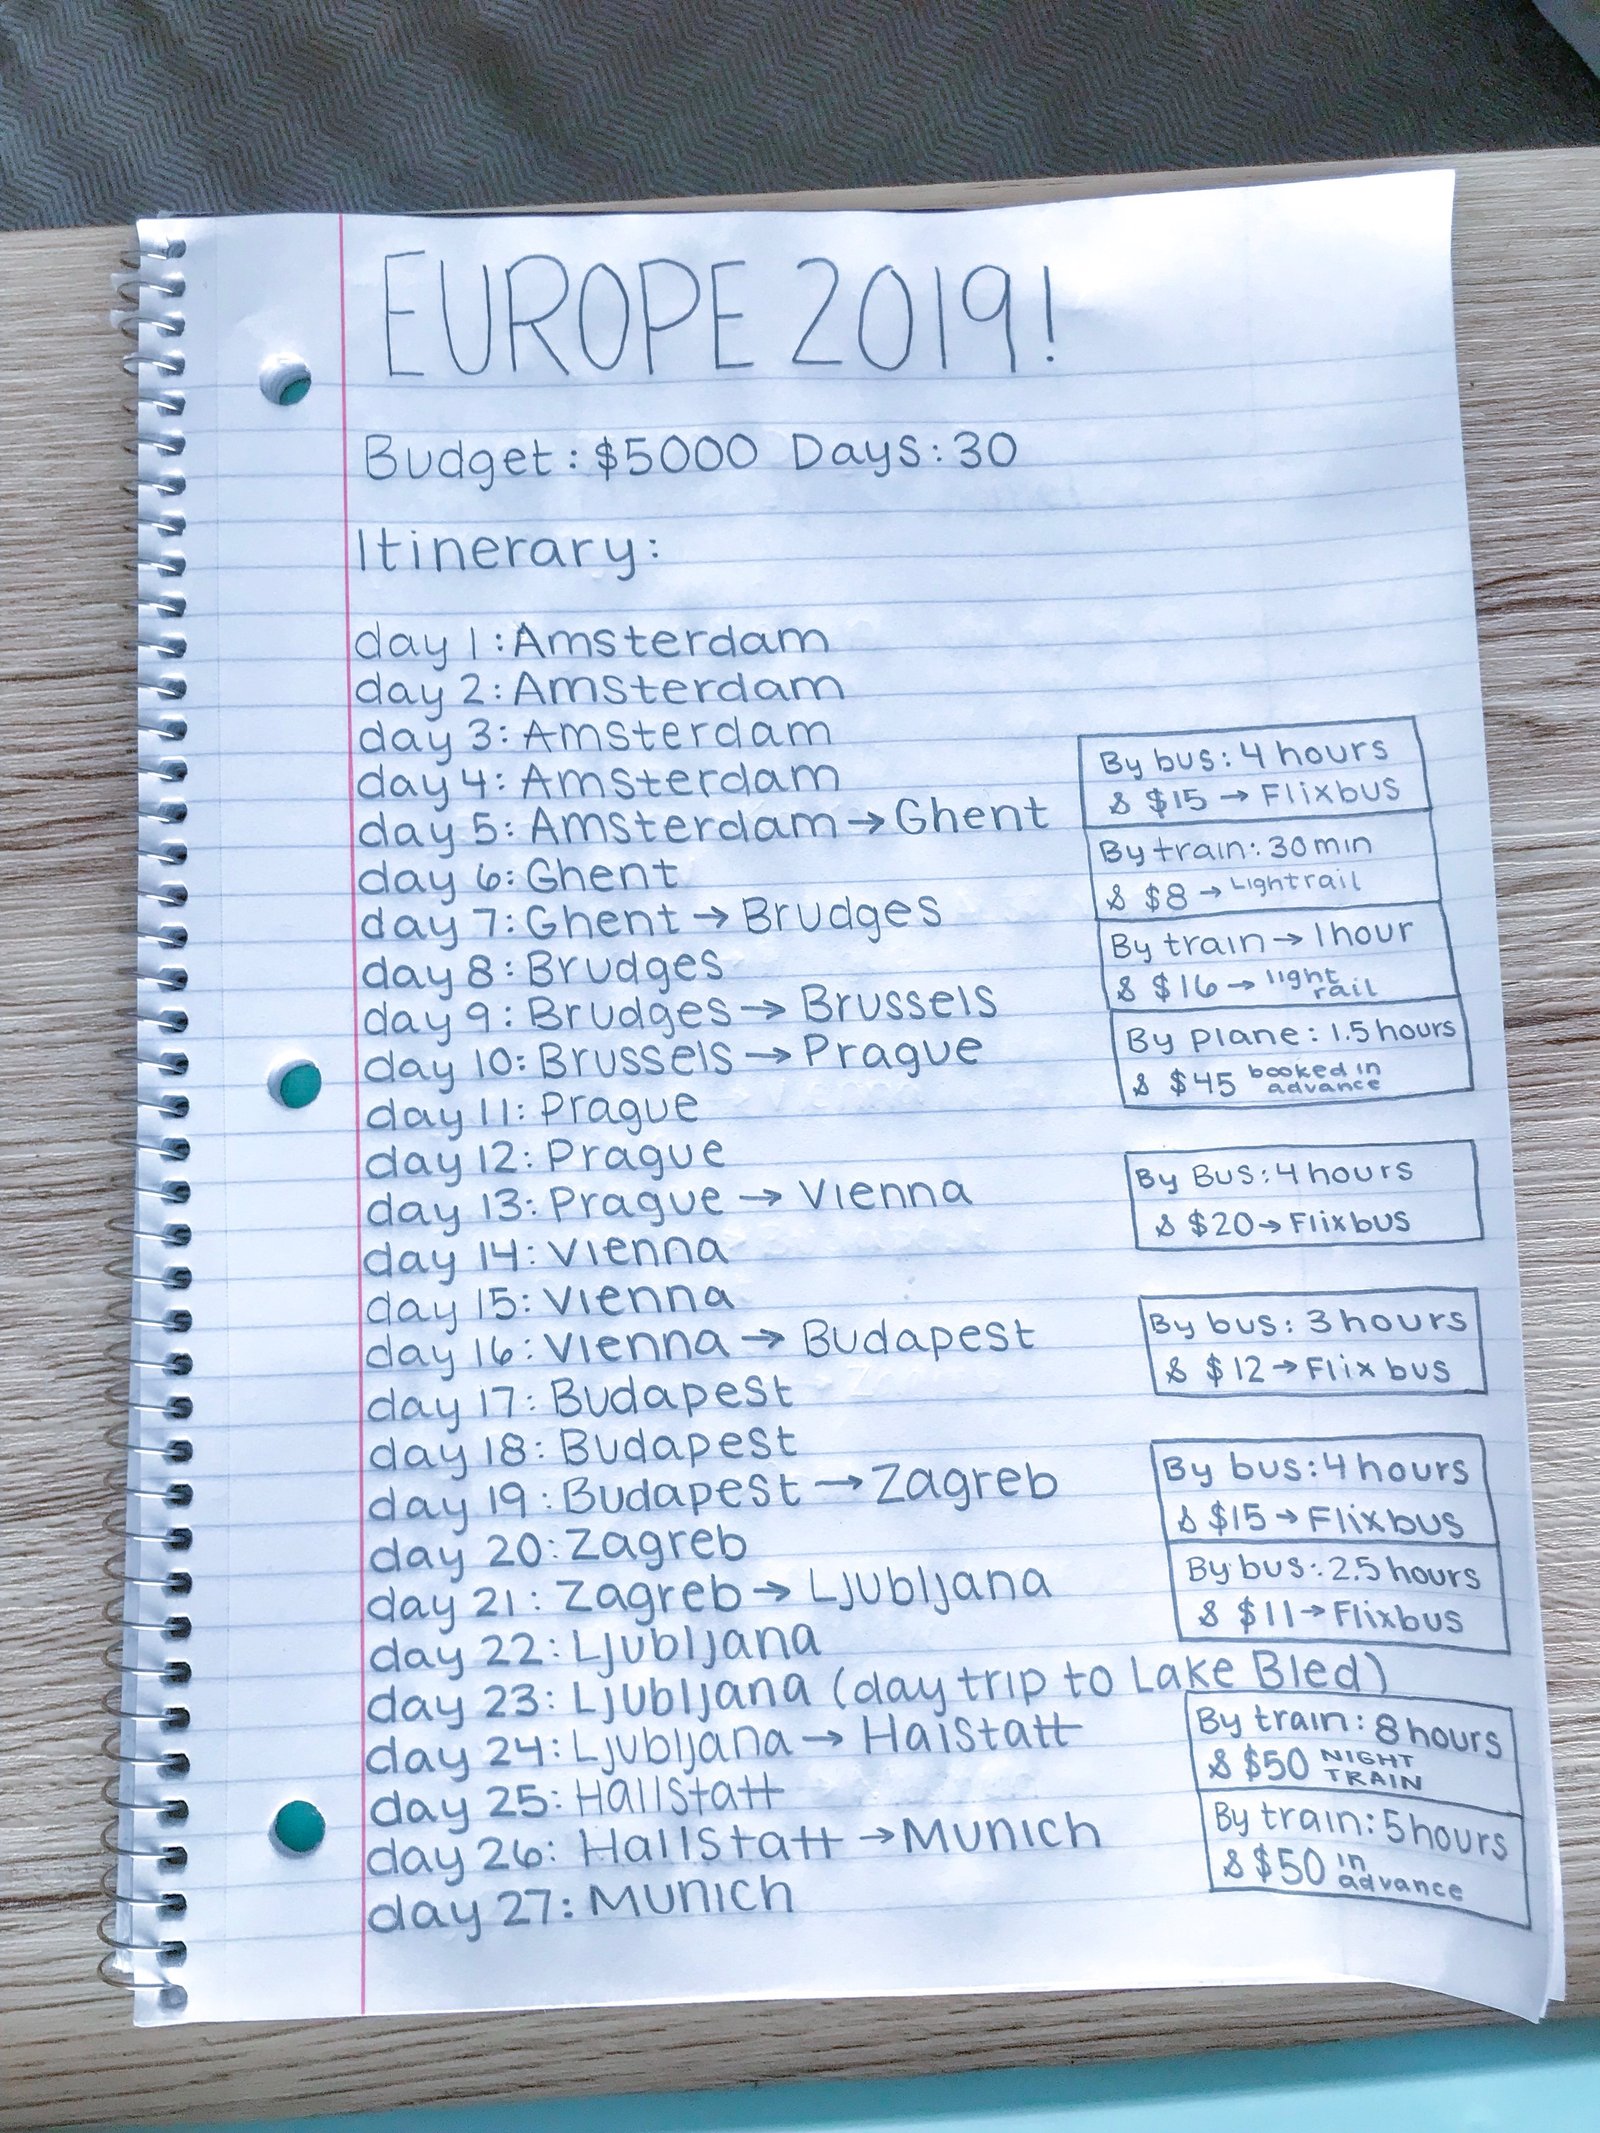 EUROPE 2019!
Budget: $5000 Days: 30
Itinerary:
day 1: Amsterdam
day 2: Amsterdam
day 3: Amsterdam
day 4: Amsterdam
By bus: 4 hours
& $15 → Flixbus
day 5: Amsterdam → Ghent
day 6: Ghent
By train: 30 min
& $8 → Lightrail
day 7: Ghent → Brudges
day 8: Brudges
By train → 1 hour
& $16 → light rail
day 9: Brudges → Brussels
By plane: 1.5 hours
& $45 booked in advance
day 10: Brussels → Prague
day 11: Prague
day 12: Prague
By Bus: 4 hours
& $20 → Flixbus
day 13: Prague → Vienna
day 14: Vienna
day 15: Vienna
By bus: 3 hours
& $12 → Flix bus
day 16: Vienna → Budapest
day 17: Budapest
day 18: Budapest
By bus: 4 hours
& $15 → Flixbus
day 19: Budapest → Zagreb
day 20: Zagreb
By bus: 2.5 hours
& $11 → Flixbus
day 21: Zagreb → Ljubljana
day 22: Ljubljana
day 23: Ljubljana (day trip to Lake Bled)
By train: 8 hours
& $50 NIGHT TRAIN
day 24: Ljubljana → Halstatt
day 25: Hallstatt
By train: 5 hours
& $50 in advance
day 26: Hallstatt → Munich
day 27: Munich